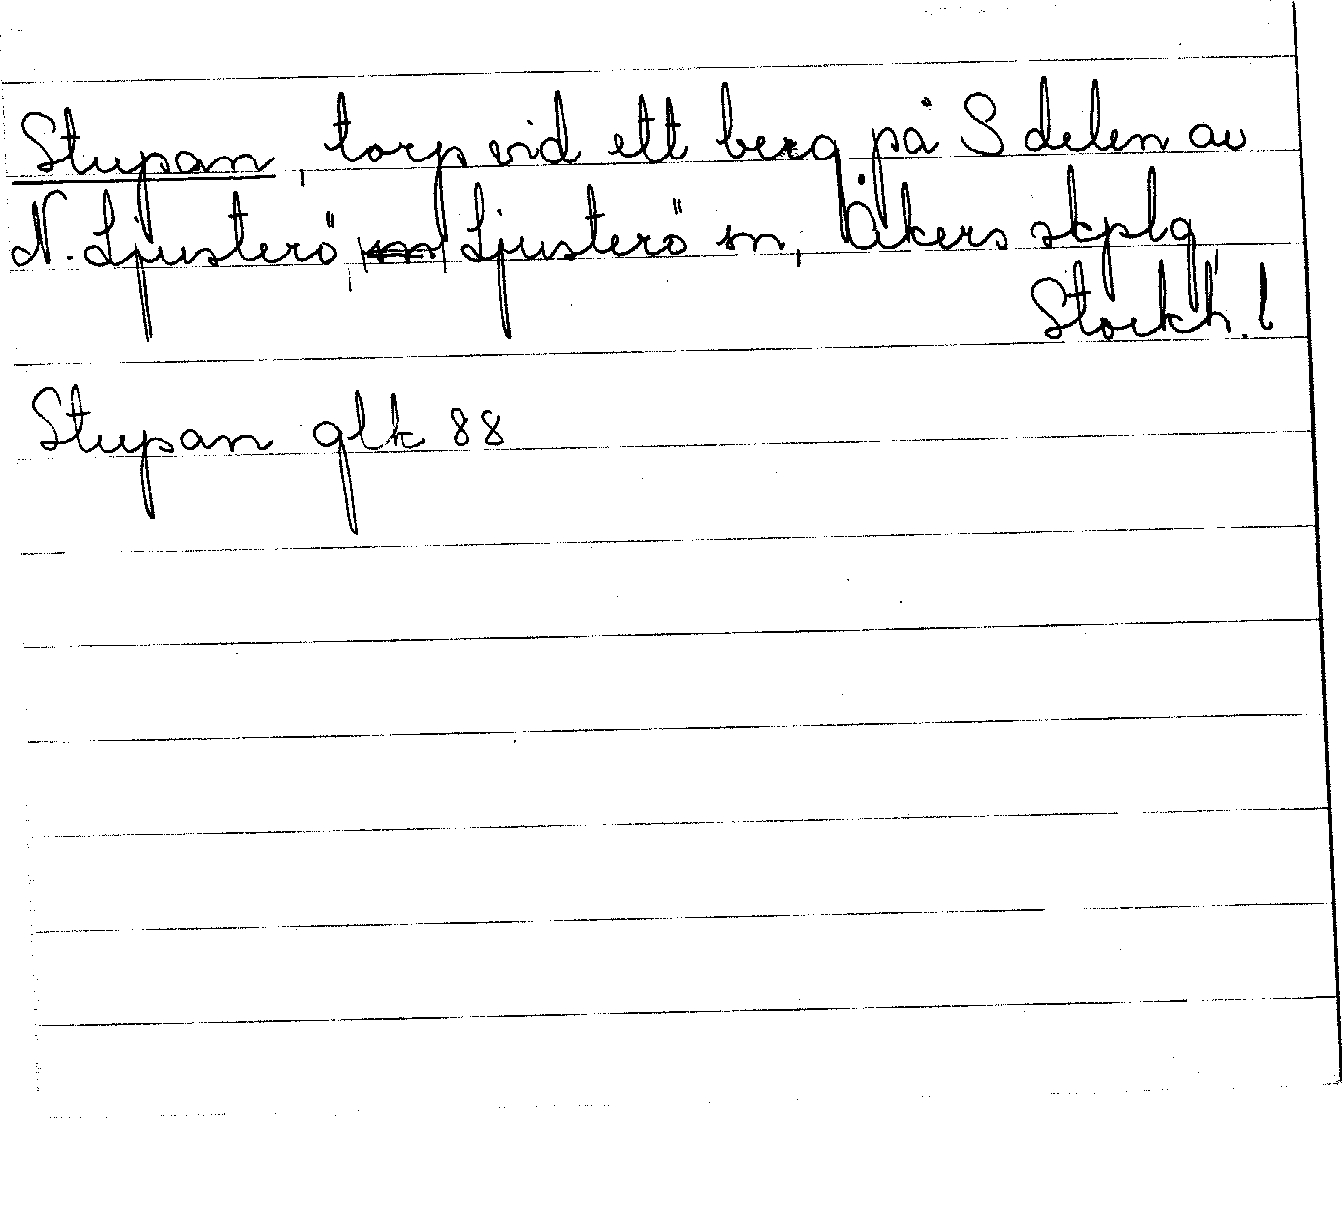 Stupan, torp vid ett berg på S delen av
N. Ljusterö, Ljusterö sn, Åkers skplg,
Stockh. l
Stupan glk 88